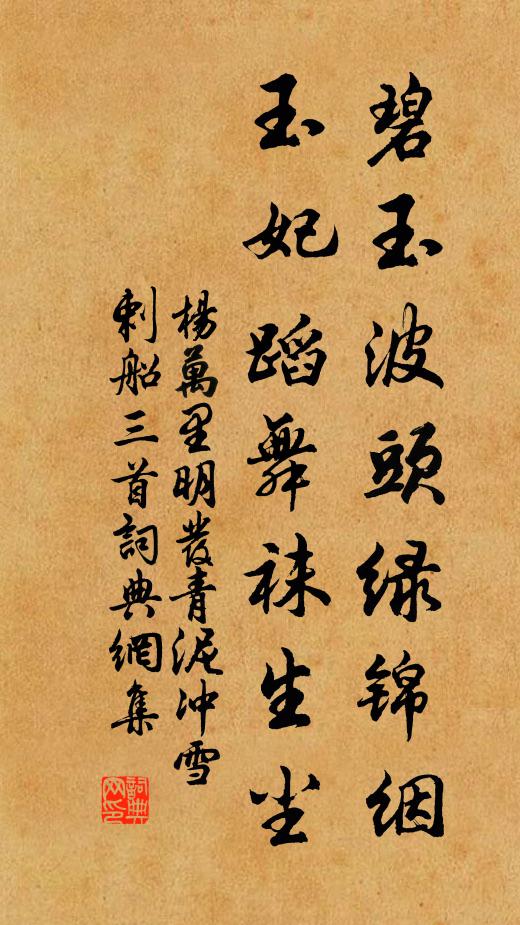 碧玉波頭绿锦絪
玉妃蹈舞袜生尘
楊萬里明發青泥冲雪
刺船三首詞典網集
詞典网印